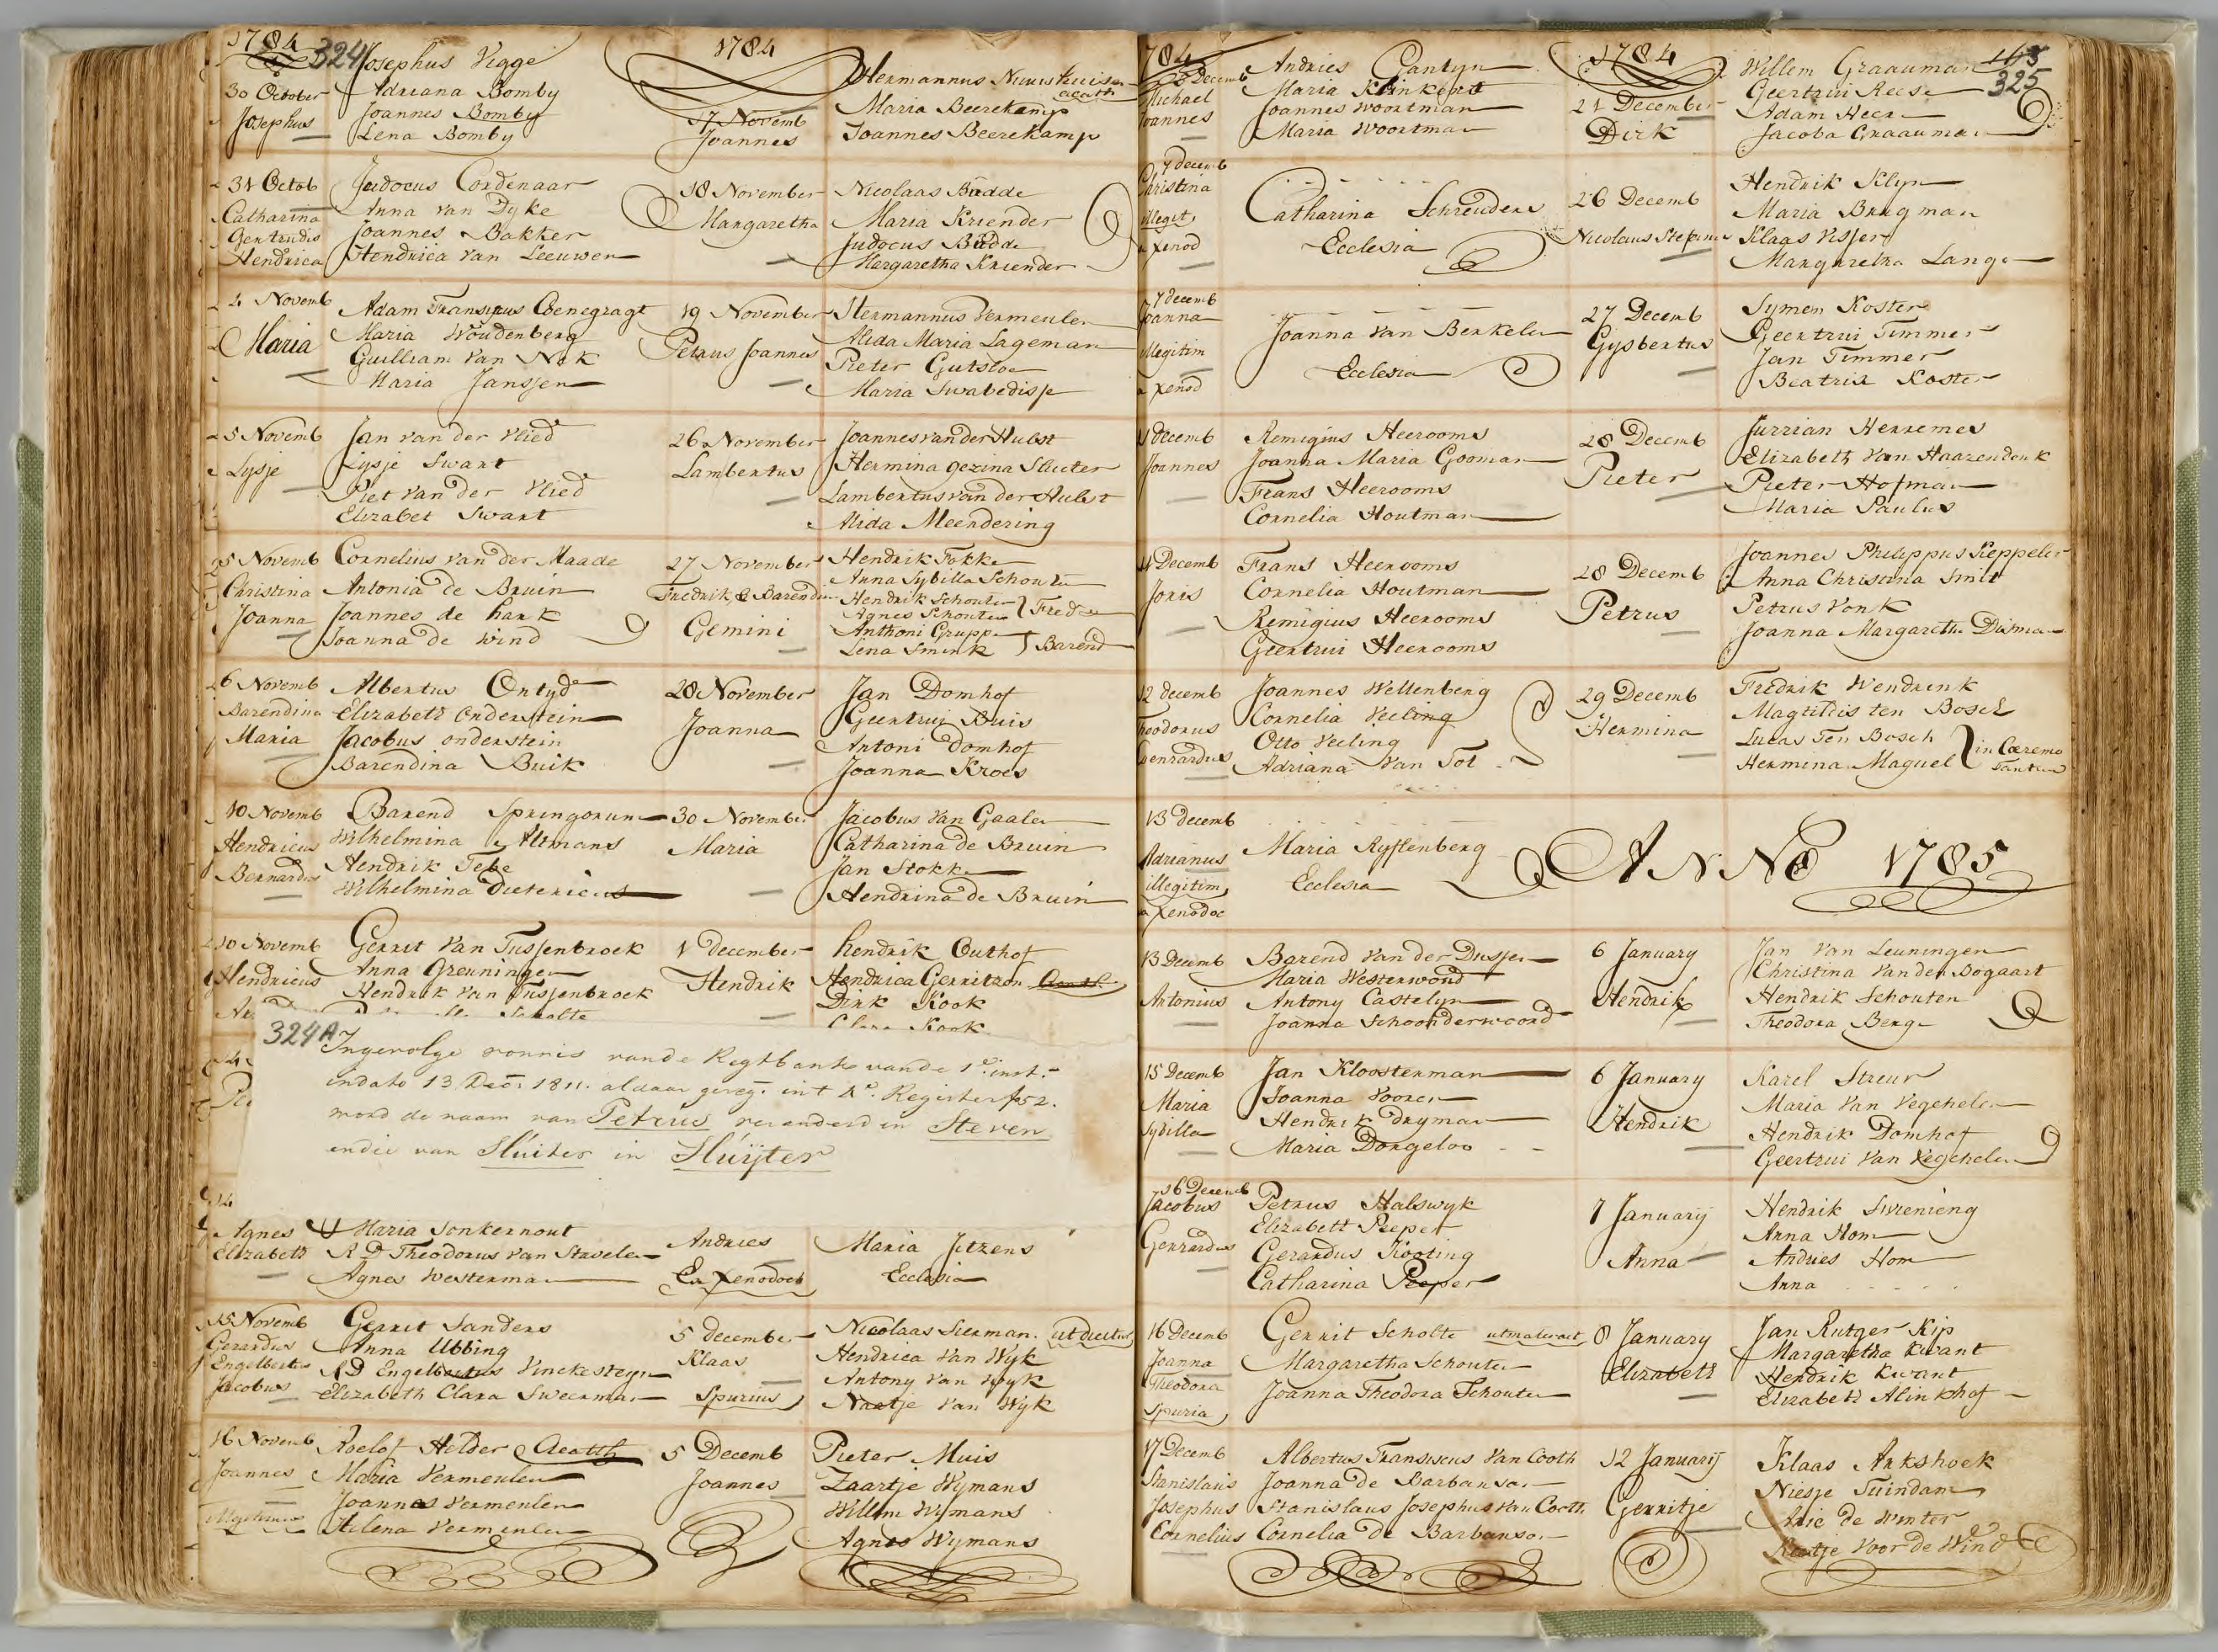 1784
324
Josephus Vigge
30 October
Adriana Bomby
Josephus
Joannes Bomby
Lena Bomby
31 Octob
Judocus Cordenaar
Catharina
Anna van Dyke
Gertrudis
Joannes Bakker
Hendrica
Hendrica van Leeuwen
4 Novemb
Adam Fransiscus Coenegragt
Maria
Maria Woudenberg
Guilliam van Nek
Maria Janssen
5 Novemb
Jan van der Vlied
Lysje
Lysje Swart
Piet van der Vlied
Elizabet Swart
5 Novemb
Cornelius van der Maade
Christina
Antonia de Bruin
Joanna
Joannes de hark
Joanna de Wind
6 Novemb
Albertus Ontyd
Barendina
Elizabeth Onderstein
Maria
Jacobus onderstein
Barendina Buik
10 Novemb
Barend Springorum
Hendricus
Wilhelmina Altmans
Bernardus
Hendrik Tepe
Wilhelmina Dieterics
10 Novemb
Gerrit van Tussenbroek
Hendricus
Anna Greuninger
Hendrik van Tussenbroek
324A
Ingevolge vonnis vande Regtbank vande 1e. inst.
indato 13 Decr. 1811. aldaar gereg. int Ae. Register fo 52.
word de naam van Petrus veranderd in Steven
endie van Sluiter in Sluijter
14
Agnes
Maria Jonkernout
Elizabeth
R D Theodorus van Stavelen
Agnes Westerman
15 Novemb
Gerrit Sanders
Gerardus
Anna Ubbing
Engelbertus
R D Engelbertus Vinckesteyn
Jacobus
Elizabeth Clara Sweerman
16 Novemb
Roelof Helder Acath
Joannes
Maria Vermeulen
Joannes Vermeulen
Illegitimus
Helena Vermeulen
1784
Hermannus Nieuwkuisen
acath
17 Novemb
Maria Beerekamp
Joannes
Joannes Beerekamp
18 November
Nicolaas Budde
Margaretha
Maria Kriender
Judocus Budde
Margaretha Kriender
19 November
Hermannus Vermeulen
Petrus Joannes
Alida Maria Lageman
Pieter Gutsloe
Maria Swabedisse
26 November
Joannes van der Hulst
Lambertus
Hermina Gezina Sluiter
Lambertus van der Hulst
Alida Meendering
27 November
Hendrik Fokke
Fredrik & Barend
Anna Sybilla Schouten
Hendrik Schouten
Agnes Schouten
Fred
Gemini
Anthoni Gruppe
Lena Smink
Barend
28 November
Jan Domhof
Joanna
Geertrui Buis
Antoni Domhof
Joanna Kroes
30 November
Jacobus van Gaalen
Maria
Catharina de Bruin
Jan Stokke
Hendrina de Bruin
1 December
hendrik Outhof
Hendrik
Hendrica Gerritzon Acath.
Dirk Kook
Clara Kook
Andries
Maria Jetzens
Ex Xenodoch
Ecclesia
5 December
Nicolaas Sierman. ut dicitur
Klaas
Hendrica van Wyk
Antony van Wyk
Spurius
Naatje van Wyk
5 Decemb
Pieter Muis
Joannes
Zaartje Wymans
Willem Wymans
Agnes Wymans
1784
Decemb
Andries Cantyn
Michael
Maria Klinkert
Joannes
Joannes Woortman
Maria Woortman
7 decemb
Christina
Catharina Schreuders
illegit.
Ecclesia
a xenod
7 decemb
Joanna
Joanna van Berkelen
illegitim
Ecclesia
a xenod
11 decemb
Remigius Heerooms
Joannes
Joanna Maria Gooman
Frans Heerooms
Cornelia Houtman
11 Decemb
Frans Heerooms
Joris
Cornelia Houtman
Remigius Heerooms
Geertrui Heerooms
12 decemb
Joannes Wellenberg
Theodorus
Cornelia Veeling
Otto Veeling
Gerrardus
Adriana van Tol
13 decemb
Adrianus
Maria Ryffenberg
illegitim
Ecclesia
a xenodoc
13 Decemb
Barend van der Dussen
Maria Westerwoud
Antonius
Antony Castelyn
Joanna Schoonderwoord
15 Decemb
Jan Kloosterman
Maria
Joanna Vooren
Sybilla
Hendrik Dryman
Maria Dorgeloo
16 Decemb
Jacobus
Petrus Halswyk
Elizabeth Peeper
Gerrardus
Gerardus Kooting
Catharina Peeper
16 Decemb
Gerrit Scholte ut mater ait
Joanna
Margaretha Schouten
Theodora
Joanna Theodora Schouten
Spuria
17 Decemb
Albertus Fransiscus van Cooth
Stanislaus
Joanna de Barbanson
Josephus
Stanislaus Josephus van Cooth
Cornelius
Cornelia de Barbanson
1784
Willem Graauman
163
325
21 December
Geertrui Reese
Dirk
Adam Heer
Jacoba Graauman
26 Decemb
Hendrik Klyn
Maria Brugman
Nicolaus Stephanus
Klaas Visser
Margaretha Lange
27 Decemb
Symen Koster
Gysbertus
Geertrui Timmer
Jan Timmer
Beatrix Koster
28 Decemb
Jurrian Hermes
Pieter
Elizabeth van Haarendonk
Pieter Hofman
Maria Paulus
28 Decemb
Joannes Philippus Keppeler
Anna Christina Smit
Petrus
Petrus Vonk
Joanna Margaretha Disman
29 Decemb
Fredrik Wendrink
Hermina
Magtildis ten Bosch
Lucas Ten Bosch
in Cæremo
Hermina Maguel
tantum
ANNO 1785
6 January
Jan van Leuningen
Christina van den Bogaart
Hendrik
Hendrik Schouten
Theodora Berge
6 January
Karel Streur
Hendrik
Maria van Vegchelen
Hendrik Domhof
Geertrui van Vegchelen
7 Januarij
Hendrik Swiening
Anna
Anna Hom
Andries Hom
Anna
8 January
Jan Rutger Kip
Elizabeth
Margaretha Kwant
Hendrik Kwant
Elizabeth Alinkhof
12 Januarij
Klaas Arkshoek
Gerritje
Niesje Tuindam
Arie de Winter
Voor de Wind